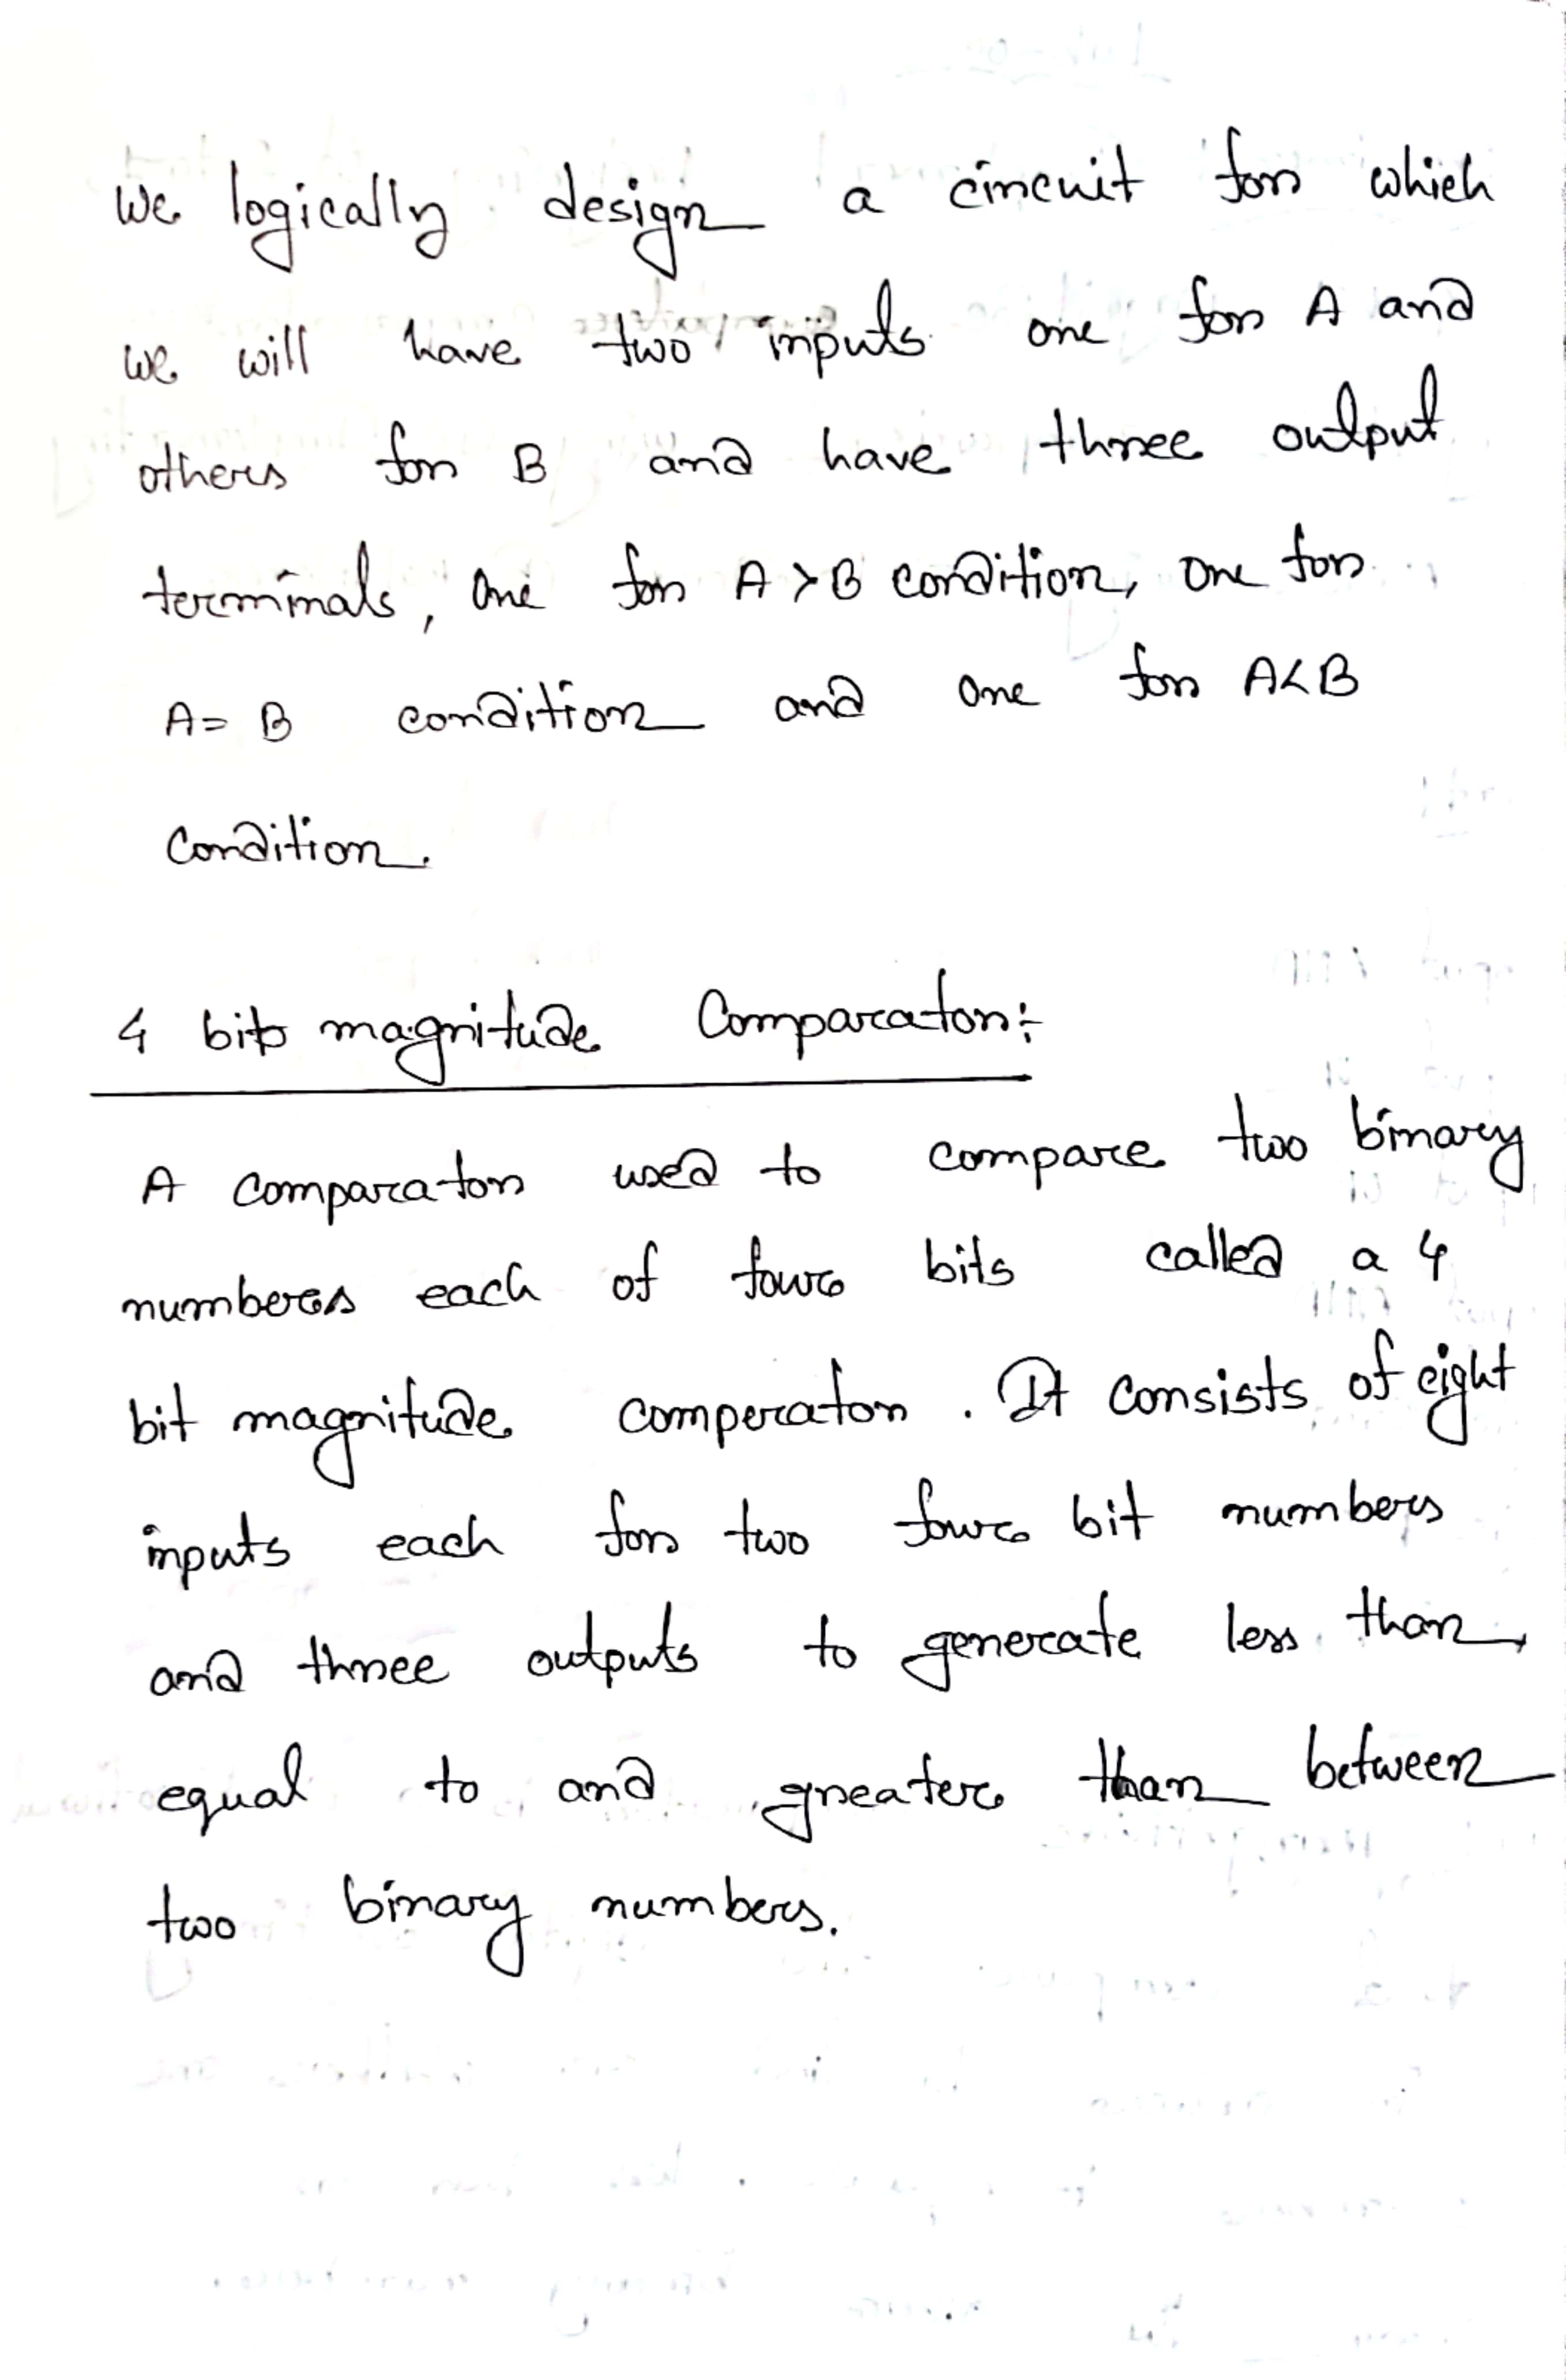 We logically design a circuit for which
we will have two inputs one for A and
others for B and have three output
terminals, one for A > B condition, one for
A = B condition and one for A < B
condition.
4 bit magnitude Comparator:
A comparator used to compare two binary
numbers each of four bits called a 4
bit magnitude comperator. It consists of eight
inputs each for two four bit numbers
and three outputs to generate less than,
equal to and greater than between
two binary numbers.